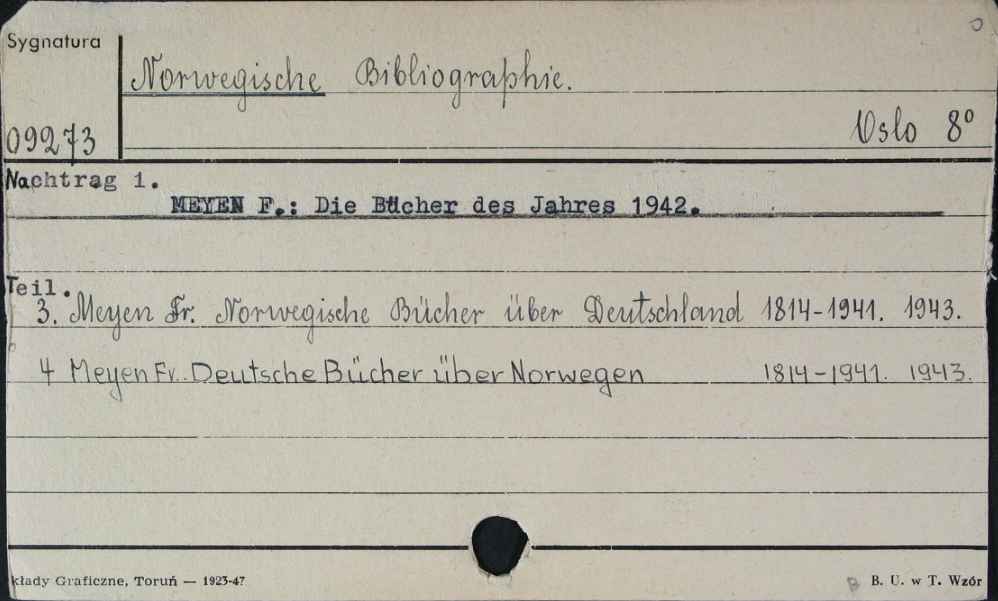 Sygnatura
Norwegische Bibliographie.
09273
Oslo 8°
Nachtrag 1.
MEYEN F.: Die Bücher des Jahres 1942.
Teil.
3. Meyen Fr. Norwegische Bücher über Deutschland 1814-1941. 1943.
4 Meyen Fr. Deutsche Bücher über Norwegen 1814-1941. 1943.
kłady Graficzne, Toruń — 1923-47
B. U. w T. Wzór